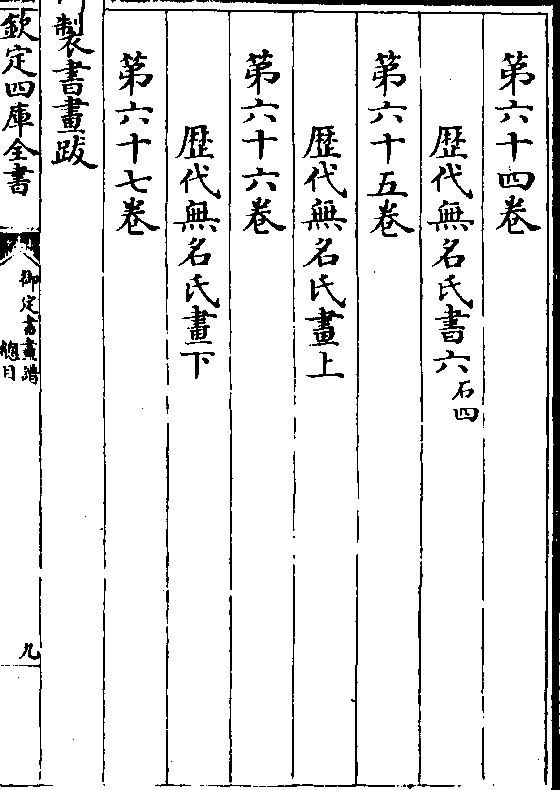 第六十四卷
歴代無名氏書六石四
第六十五卷
歴代無名氏畫上
第六十六卷
歴代無名氏畫下
第六十七卷
製書畫跋
欽定四庫全書
御定書畫譜
總目
九